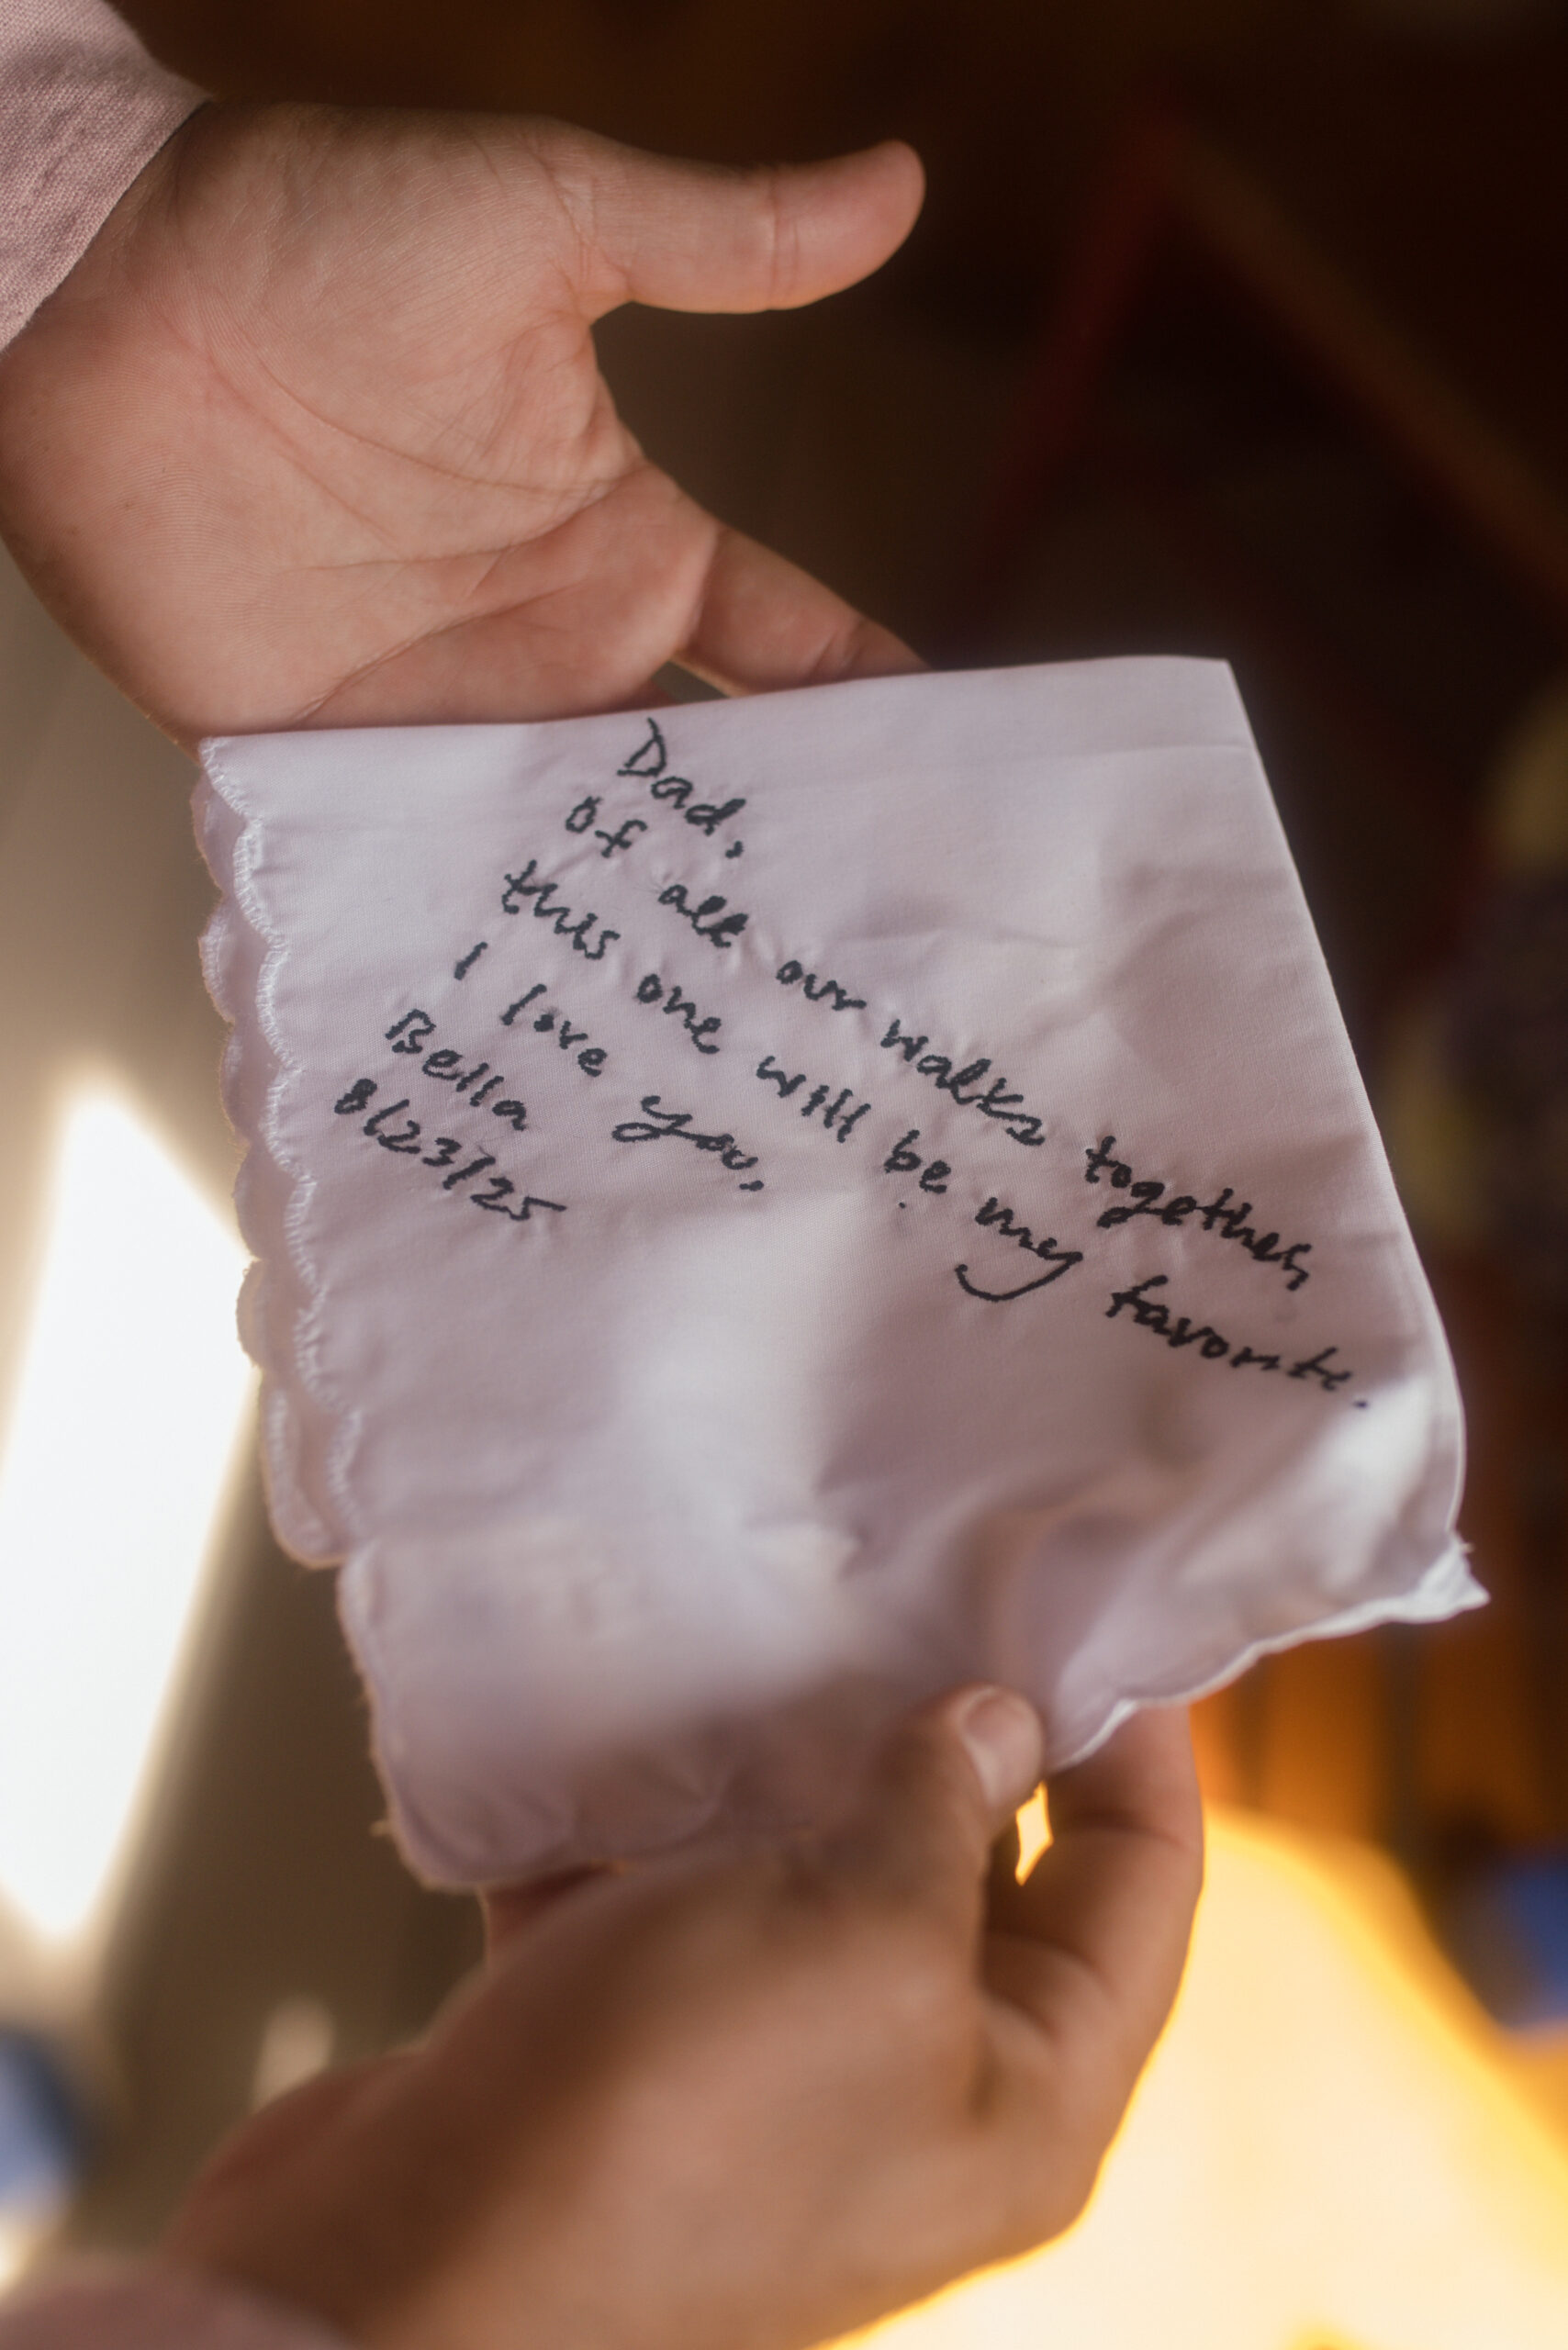 Dad,
Of all our walks together,
this one will be my favorite.
I love you,
Bella
8/23/25